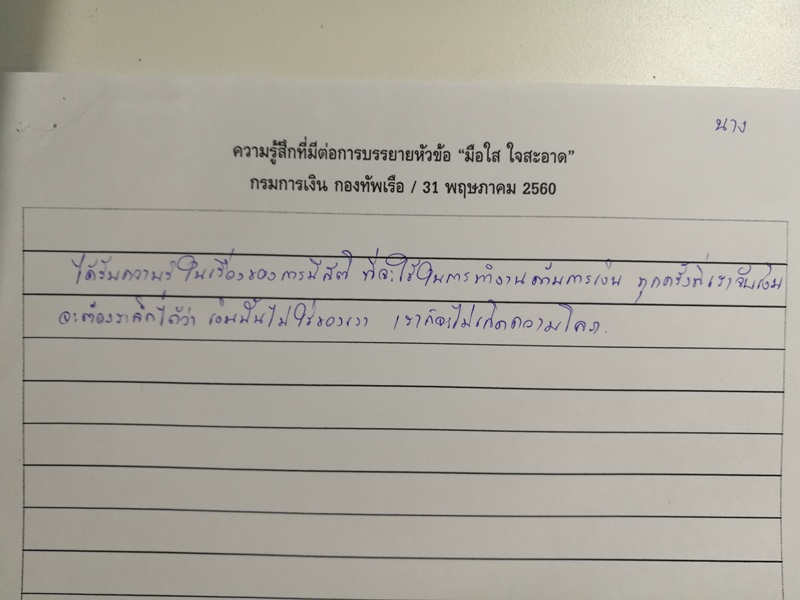 นาง
ความรู้สึกที่มีต่อการบรรยายหัวข้อ “มือใส ใจสะอาด”
กรมการเงิน กองทัพเรือ / 31 พฤษภาคม 2560
ได้รับความรู้ในเรื่องของการมีสติ ที่จะใช้ในการทำงานด้านการเงิน ทุกครั้งที่เราจับเงิน
จะต้องระลึกได้ว่า เงินนั้นไม่ใช่ของเรา เราก็จะไม่เกิดความโลภ.